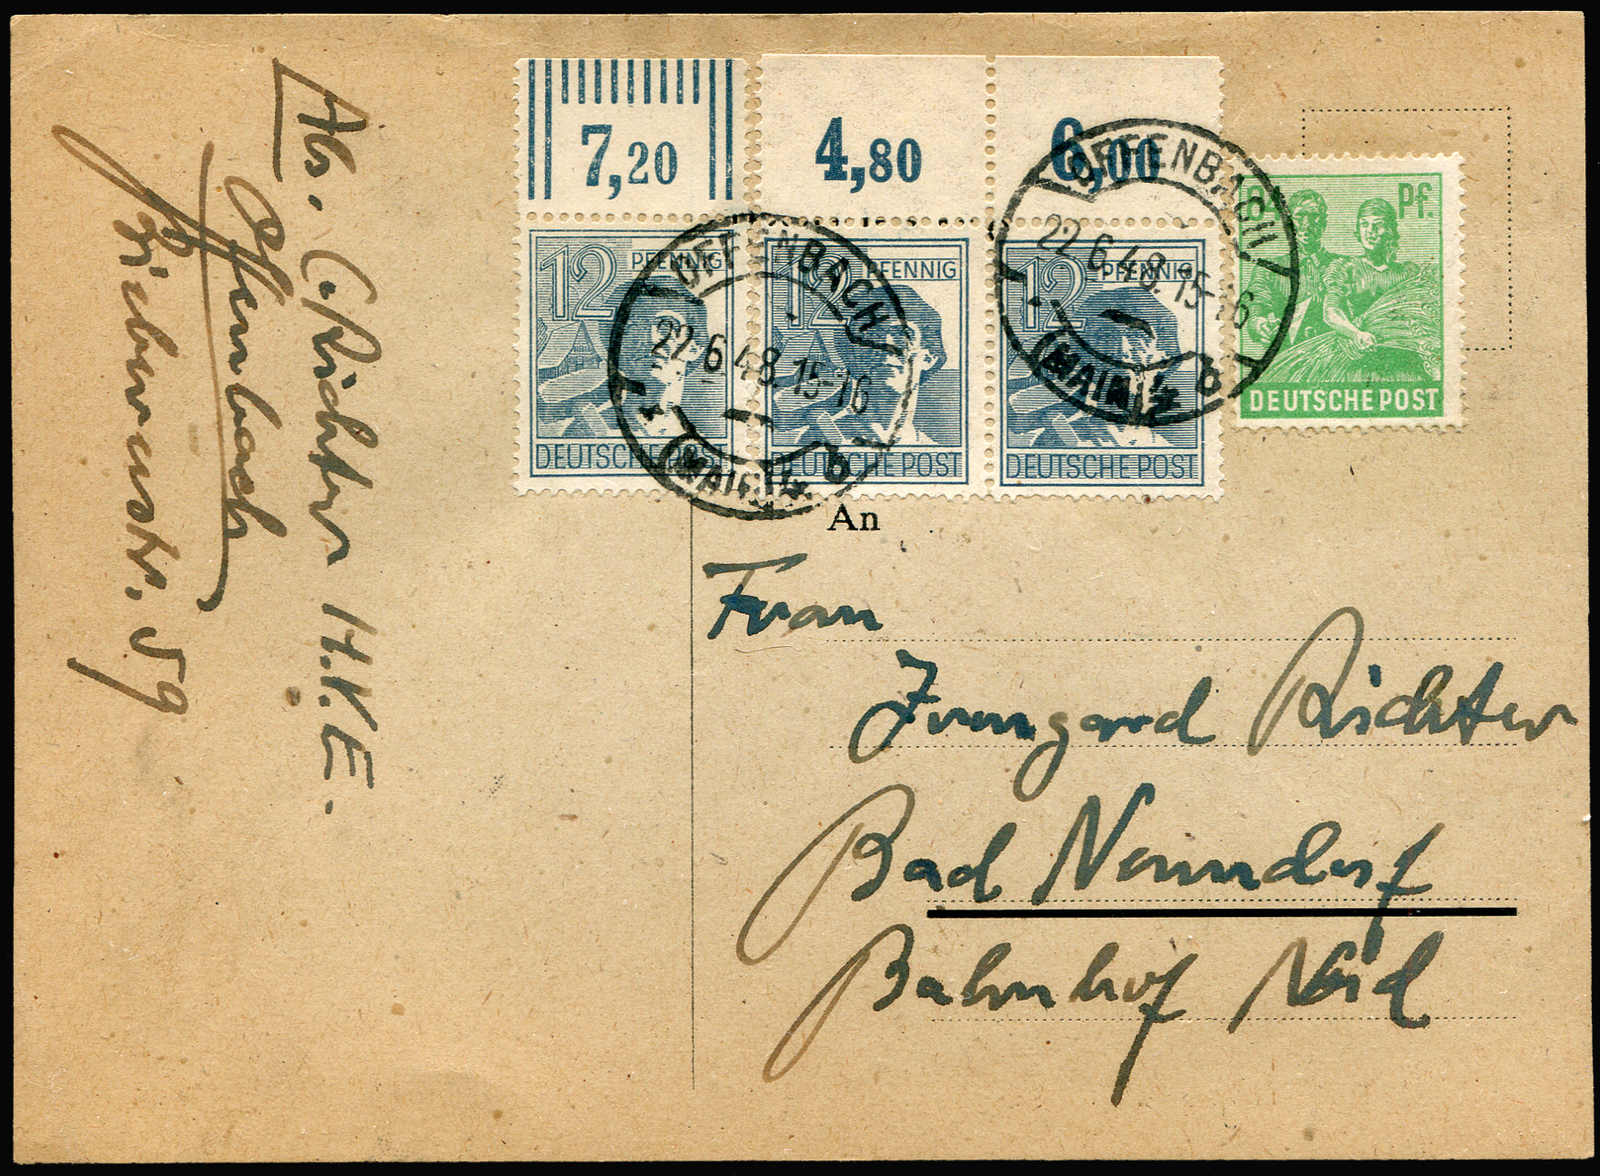 Abs. C. Richter H.K.E.
Offenbach
Biebererstr. 59
7,20
4,80
6,00
12 PFENNIG
12 PFENNIG
12 PFENNIG
DEUTSCHE POST
DEUTSCHE POST
DEUTSCHE POST
Pf.
DEUTSCHE POST
OFFENBACH
22.6.48.15-16
(MAIN) 4 b
OFFENBACH
22.6.48.15-16
(MAIN) 4 b
An
Frau
Irmgard Richter
Bad Nenndorf
Bahnhof Nord